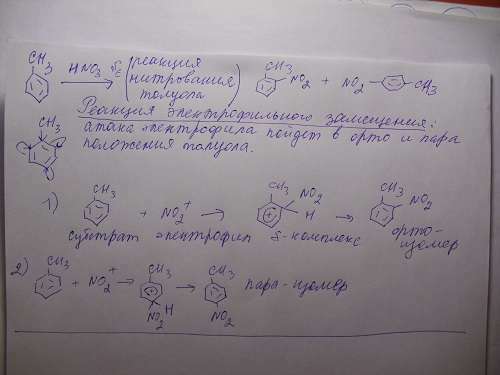 CH3 HNO3 (реакция CH3 CH3
нитрования NO2 + NO2
толуола)
Реакция электрофильного замещения:
атака электрофила пойдет в орто и пара
CH3 положения толуола.
1) CH3 + NO2+ → CH3 NO2 H → CH3 NO2
субстрат электрофил σ-комплекс орто-
изомер
2) CH3 + NO2+ → CH3 + H NO2 → CH3 NO2 пара-изомер